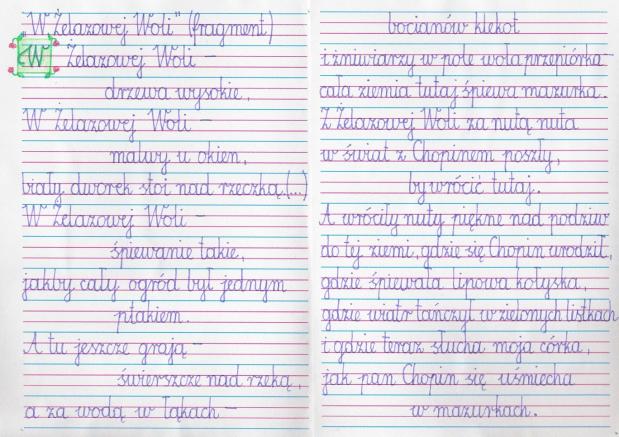 "W Żelazowej Woli" (fragment)
W Żelazowej Woli –
drzewa wysokie,
W Żelazowej Woli –
malwy u okien,
biały dworek stoi nad rzeczką.(...)
W Żelazowej Woli –
śpiewanie takie,
jakby cały ogród był jednym
ptakiem.
A tu jeszcze grają –
świerszcze nad rzeką,
a za wodą w łąkach –
bocianów klekot
i żniwiarzy w pole woła przepiórka –
cała ziemia tutaj śpiewa mazurka.
Z Żelazowej Woli za nutą nuta
w świat z Chopinem poszły,
by wrócić tutaj.
A wróciły nuty piękne nad podziw
do tej ziemi, gdzie się Chopin urodził,
gdzie śpiewała lipowa kołyska,
gdzie wiatr tańczył w zielonych listkach
i gdzie teraz słucha moja córka,
jak pan Chopin się uśmiecha
w mazurkach.